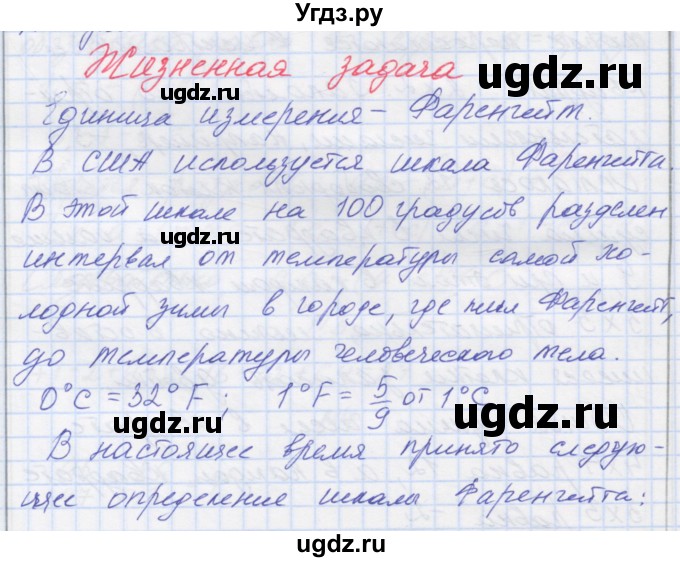 Угдз.ру
Жизненная задача
Единица измерения – Фаренгейт.
В США используется шкала Фаренгейта.
В этой шкале на 100 градусов разделен
интервал от температуры самой хо-
лодной зимы в городе, где жил Фаренгейт,
до температуры человеческого тела.
0°C = 32°F; 1°F = 5/9 от 1°C
В настоящее время принято следую-
щее определение шкалы Фаренгейта:
ugdz.ru
ugdz.ru
ugdz.ru
ugdz.ru
ugdz.ru
ugdz.ru
ugdz.ru
ugdz.ru